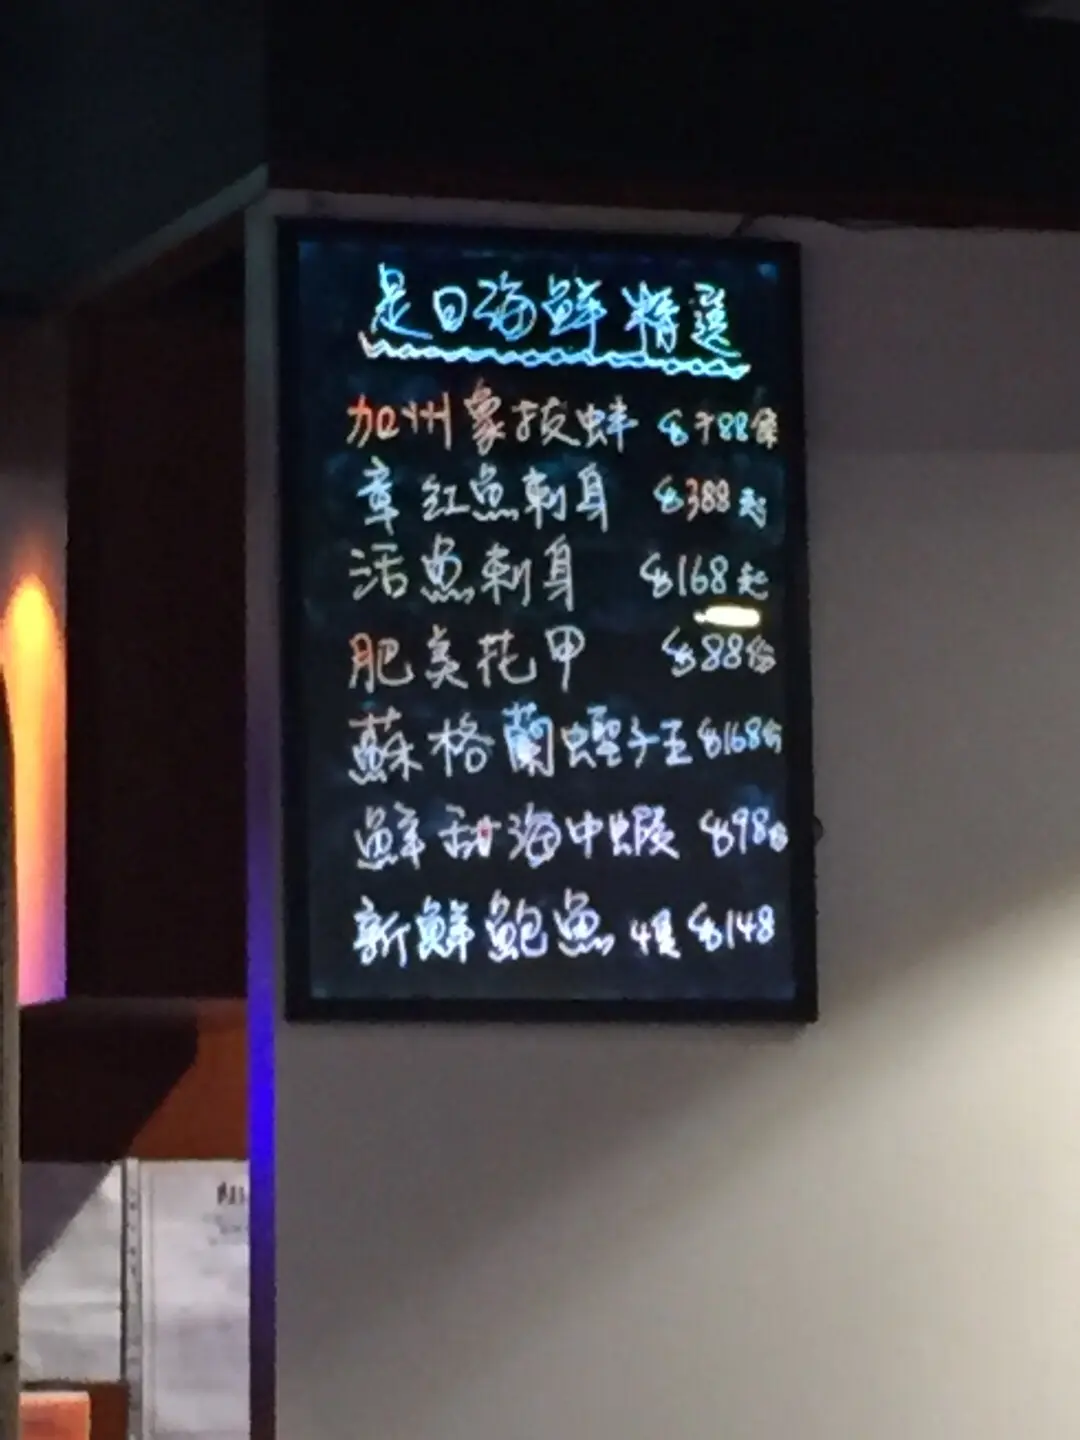 是日海鮮精選
加州象拔蚌 $788條
章紅魚刺身 $388起
活魚刺身 $168起
肥美花甲 $88份
蘇格蘭蟶子王 $168份
鮮甜海中蝦 $98份
新鮮鮑魚 4隻 $148